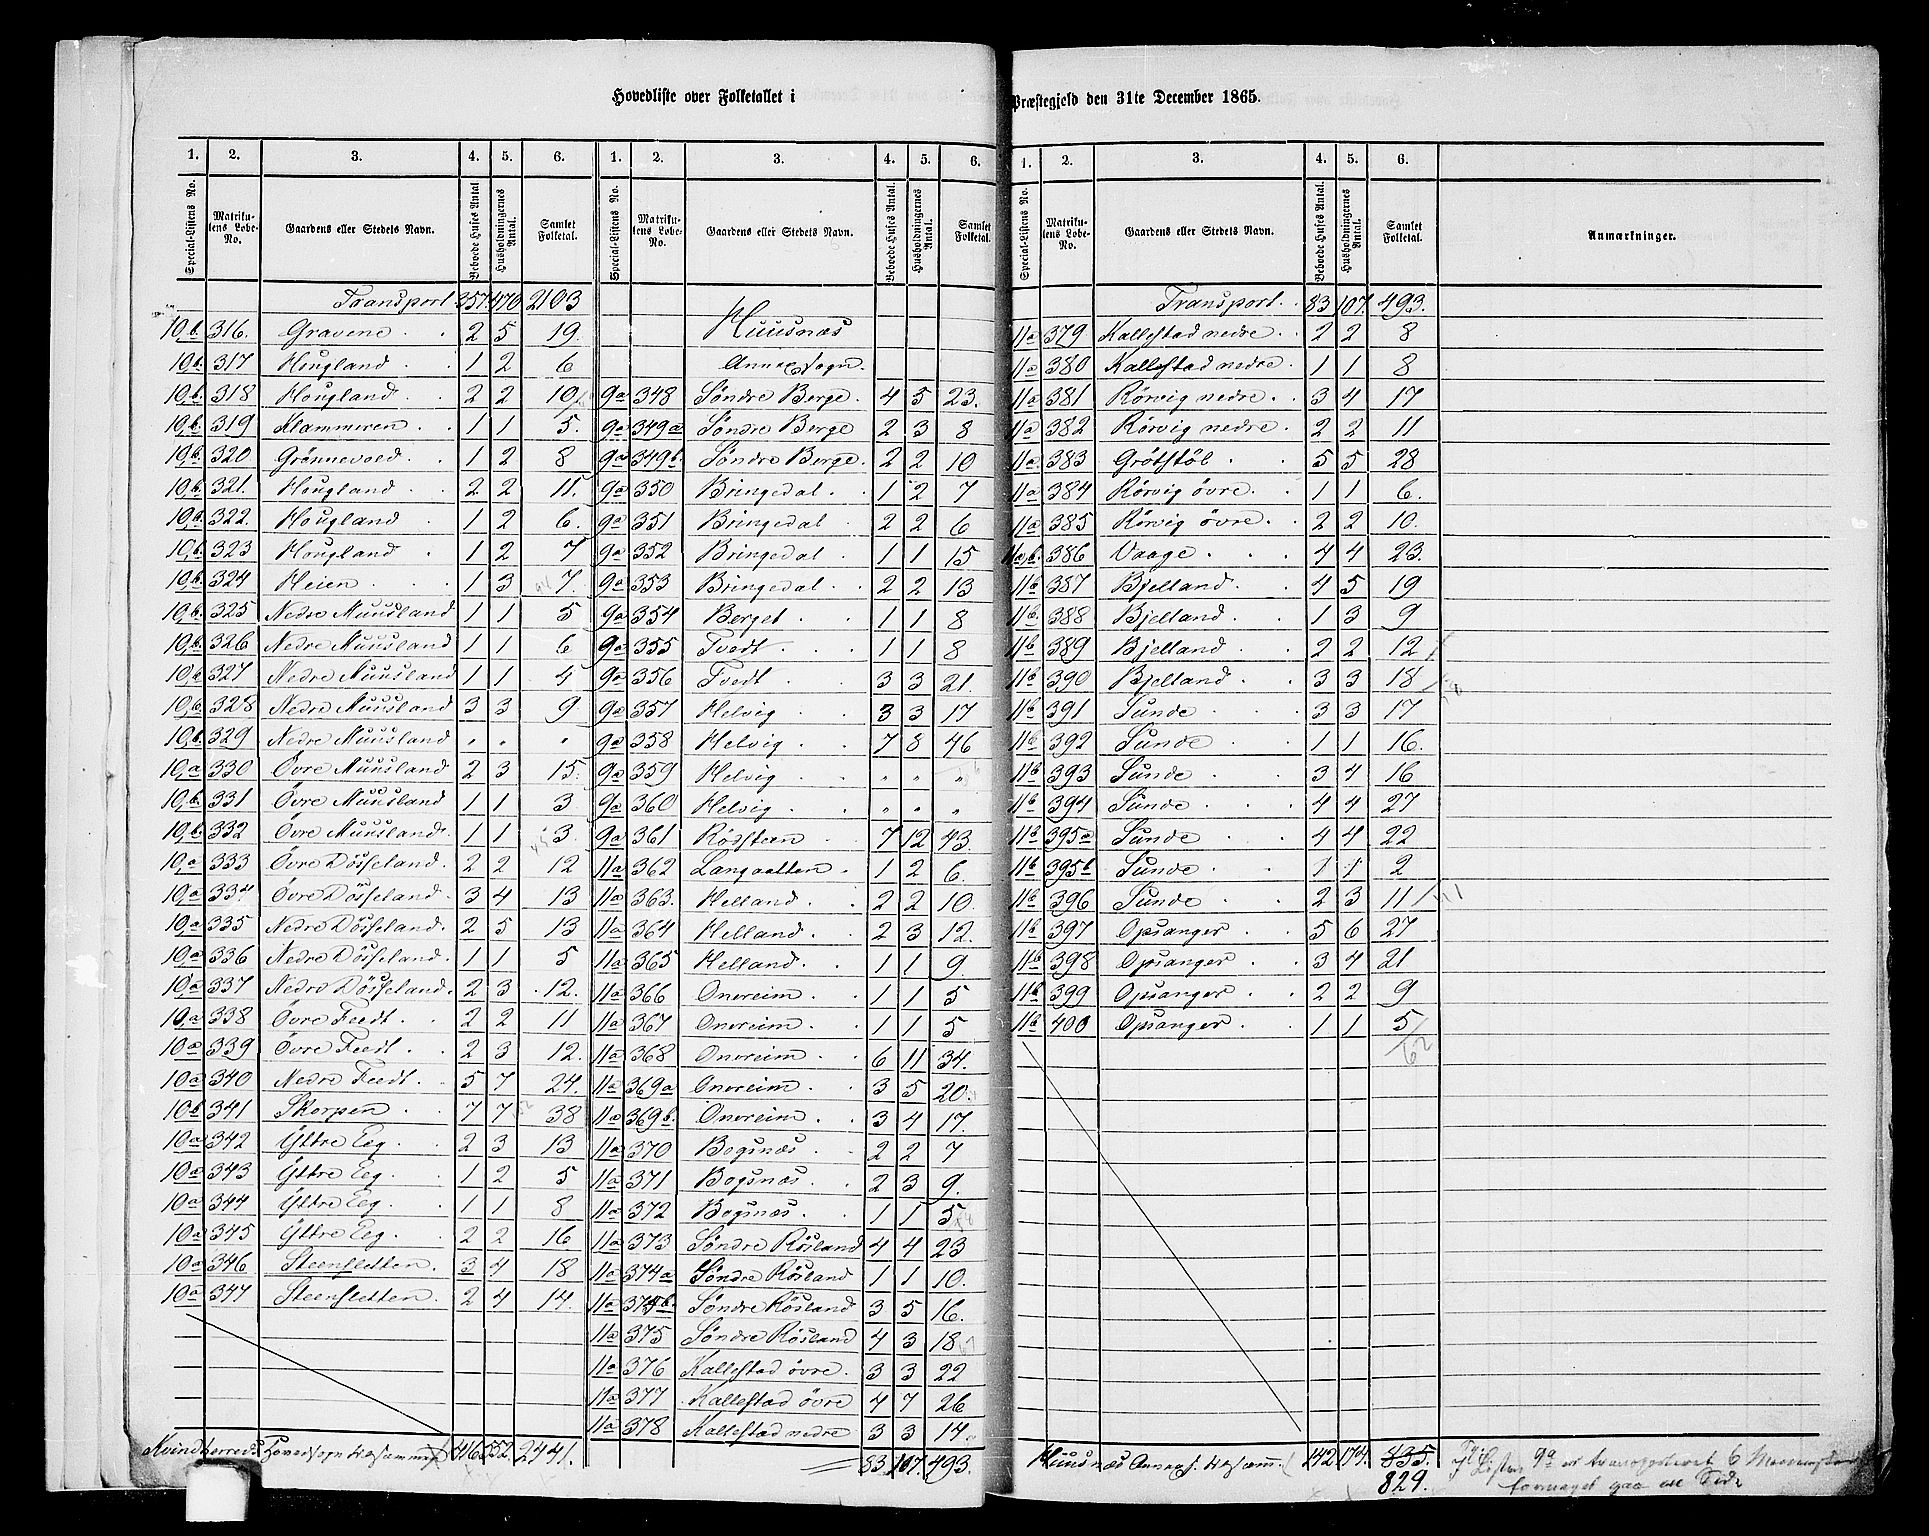 Hovedliste over Folketallet i Præstegjeld den 31te December 1865.
1. 2. 3. 4. 5. 6. 1. 2. 3. 4. 5. 6.
Special-Listens No. Matrikulens Løbe-No. Gaardens eller Stedets Navn. Beboede Huses Antal. Husholdningernes Antal. Samlet Folketal. Special-Listens No. Matrikulens Løbe-No. Gaardens eller Stedets Navn. Beboede Huses Antal. Husholdningernes Antal. Samlet Folketal.
Transport 357 470 2103
10,b. 316. Gravene 2 5 19.
10,b. 317 Hougland 1 2 6
10,b. 318 Hougland 2 2 10
10,b. 319 Klammeren 1 1 5.
10,b. 320 Grønnevold 1 2 8
10,b. 321. Hougland 2 2 11.
10,a. 322. Hougland 1 2 6.
10,b. 323 Hougland 1 2 7
10,b. 324 Heien 1 3 7.
10,b. 325 Nedre Muusland 1 1 5
10,b. 326 Nedre Muusland 1 1 6
10,b. 327 Nedre Muusland 1 1 4
10,b. 328 Nedre Muusland 3 3 9
10,b. 329 Nedre Muusland " " "
10,a 330 Øvre Muusland 2 3 15.
10,b. 331 Øvre Muusland 1 1 3
10,b. 332 Øvre Muusland 1 1 3.
10,a 333 Øvre Døsseland 2 2 12
10,a 334 Øvre Døsseland 3 4 13
10,a 335 Nedre Døsseland 2 5 13
10,a 336 Nedre Døsseland 1 1 5
10,a 337 Nedre Døsseland 2 3 12.
10,a 338 Øvre Feedt 2 2 11
10a 339 Øvre Feedt 2 3 12
10a 340 Nedre Feedt 5 7 24.
10b 341 Skorpen 7 7 38
10a 342 Yttre Eeg 2 3 13
10a 343 Yttre Eeg 1 2 5
10a 344 Yttre Eeg 1 1 8
10a 345 Yttre Eeg 2 2 16
10a 346 Steensletten 3 4 18
10a 347 Steensletten 2 4 14.
Kvindherreds Hovedsogn tilsammen 416 552 2441.
Huusnæs
Annex Sogn.
9a 348 Søndre Berge 4 5 23.
9a 349a Søndre Berge 2 3 8
9a 349b. Søndre Berge 2 2 10
9a 350 Bringedal 1 2 7
9a 351 Bringedal 2 2 6
9a 352 Bringedal 1 1 15
9a 353 Bringedal 2 2 13
9a 354 Berget 1 1 8
9a 355 Tvedt 1 1 8
9a 356 Tvedt 3 3 21.
9a 357 Helvig 3 3 17
9a 358 Helvig 7 8 46
9a 359 Helvig " " "
9a 360 Helvig " " "
9a 361 Rødsteen 7 12 43.
11a 362 Langaatten 1 2 6.
11a 363. Helland 2 2 10.
11a 364 Helland 2 3 12.
11a 365 Helland 1 1 9
11a 366 Onereim 1 1 5
11a 367 Onereim 1 1 5
11a 368 Onereim 6 11 34.
11a 369a Onereim 3 5 20.
11a 369b. Onereim 3 4 17.
11a 370 Bogsnæs 2 2 7
11a 371 Bogsnæs 2 3 9.
11a 372 Bogsnæs 1 1 5
11a 373 Søndre Røsland 4 4 23
11a 374a Søndre Røsland 1 1 10.
11a 374b. Søndre Røsland 3 5 16.
11a 375 Søndre Røsland 4 3 18
11a 376 Kallestad øvre 3 3 22
11a 377 Kallestad øvre 4 7 26
11a 378 Kallestad nedre 3 3 14.
83. 107. 493.
1. 2. 3. 4. 5. 6.
Special-Listens No. Matrikulens Løbe-No. Gaardens eller Stedets Navn. Beboede Huses Antal. Husholdningernes Antal. Samlet Folketal. Anmærkninger.
Transport 83 107. 493.
11a 379 Kallestad nedre 2 2 8
11a 380 Kallestad nedre 1 1 8
11a 381 Rørvig nedre 3 4 17
11a 382 Rørvig nedre 2 2 11
11a 383 Grøtstøl 5 5 28
11a 384 Rørvig øvre 1 1 6.
11a 385 Rørvig øvre 2 2 10.
11a,b. 386 Vaage 4 4 23.
11b 387 Bjelland 4 5 19
11b. 388 Bjelland 1 3 9
11b 389 Bjelland 2 2 12
11b. 390 Bjelland 3 3 18
11b. 391 Sunde 3 3 17
11b 392 Sunde 1 1 16.
11b. 393 Sunde 3 4 16
11b. 394 Sunde 4 4 27
11b 395a Sunde 4 4 22
11b 395b Sunde 1 1 2
11b 396 Sunde 2 3 11
11b 397 Opsanger 5 6 27
11b 398 Opsanger 3 4 21
11b 399 Opsanger 2 2 9
11b 400 Opsanger 1 1 5
62
Huusnæs Annex S. tilsamm. 142 174. 835.
829.
I Listen 9a er transporteret 6 Mennesker
formeget paa en Side